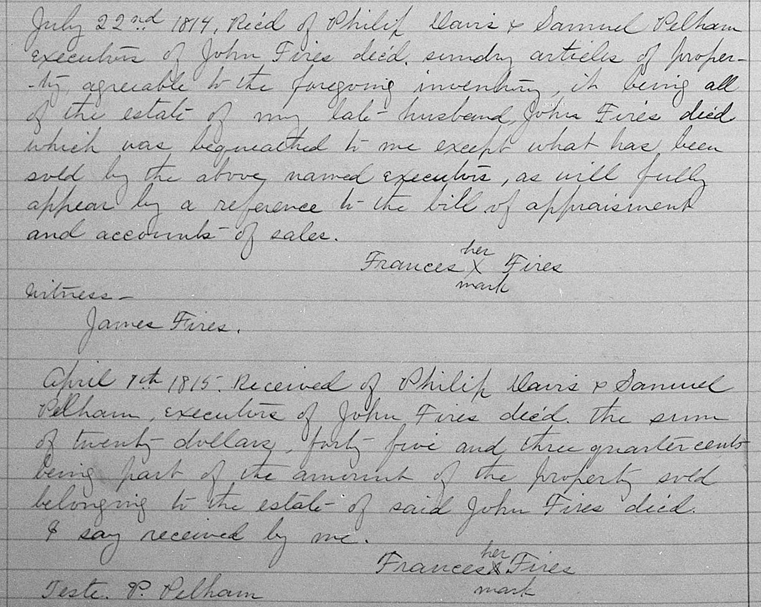 July 22nd 1814, Rec'd of Philip Davis & Samuel Pelham
executors of John Fires dec'd. sundry articles of proper-
-ty agreeable to the foregoing inventory, it being all
of the estate of my late husband, John Fires dec'd
which was bequeathed to me except what has been
sold by the above named executors, as will fully
appear by a reference to the bill of appraisment
and accounts of sales.
her
Frances X Fires
mark
Witness -
James Fires.
April 7th 1815. Received of Philip Davis & Samuel
Pelham, executors of John Fires dec'd. the sum
of twenty dollars, forty five and three quarter cents
being part of the amount of the property sold
belonging to the estate of said John Fires dec'd.
I say received by me.
her
Frances X Fires
mark
Teste. P. Pelham